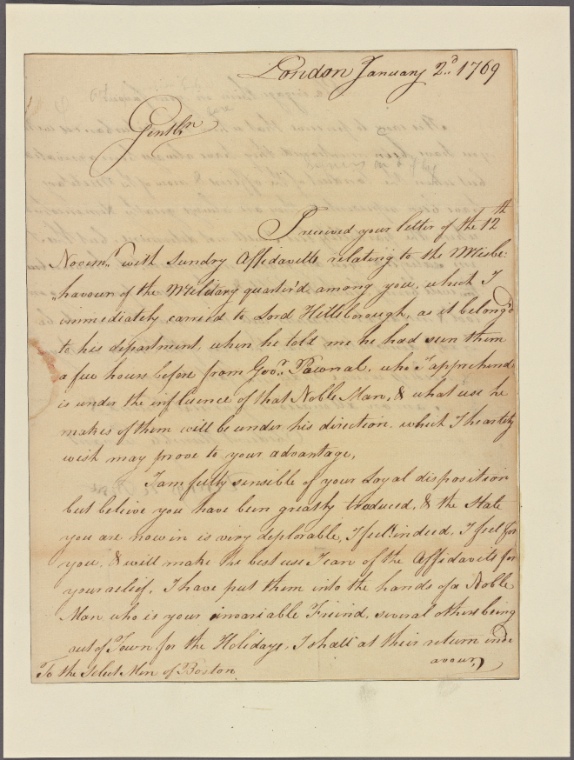 London January 2.d 1769
Gentln
I received your letter of the 12th
Novem.r with Sundry Affidavitts relating to the Misbe=
=haviour of the Military quarter'd among you, which I
immediately carried to Lord Hillsborough, as it belong'd
to his department, when he told me he had seen them
a few hours before from Gov.r Pownal, who I apprehend
is under the influence of that Noble Man, & what use he
makes of them will be under his direction. which I heartily
wish may prove to your advantage,
I am fully sensible of your Loyal disposition
but believe you have been greatly traduced, & the State
you are now in is very deplorable, I feel indeed, I feel for
you, & will make the best use I can of the Affidavits for
your relief, I have put them into the hands of a Noble
Man who is your invariable Friend, several others being
out of Town for the Holidays, I shall at their return inde
avour
To the Select Men of Boston